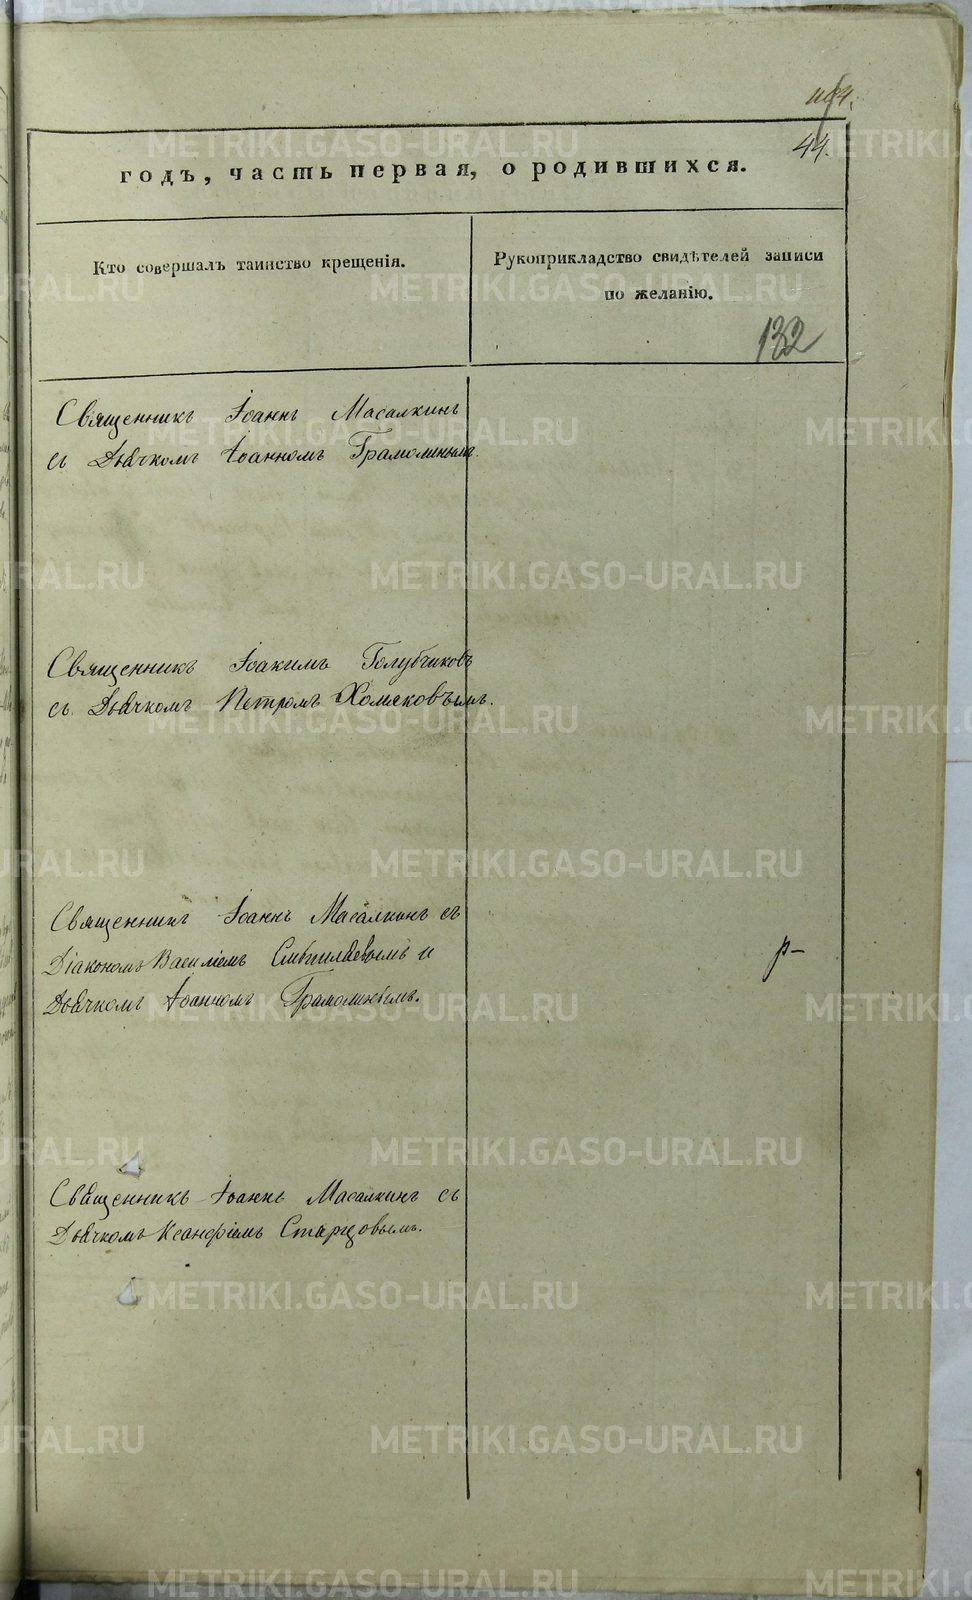 44.
годъ, часть первая, о родившихся.
Кто совершалъ таинство крещенія.
Рукоприкладство свидѣтелей записи
по желанію.
132
Священникъ Іоаннъ Масалкинъ
съ Дьячкомъ Іоанномъ Грамолинымъ.
Священникъ Іоакимъ Голубчиковъ
съ Дьячкомъ Петромъ Хомяковымъ.
Священникъ Іоаннъ Масалкинъ съ
Діакономъ Василіемъ и
Дьячкомъ Іоанномъ Грамолинымъ.
Священникъ Іоаннъ Масалкинъ съ
Дьячкомъ Ксанфіемъ Старцовымъ.
METRIKI.GASO-URAL.RU